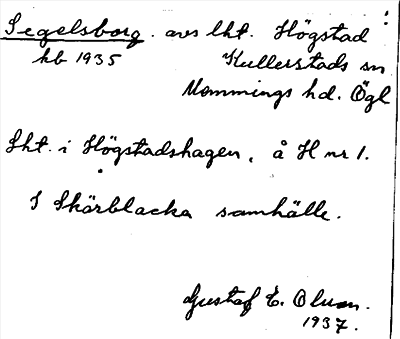 Segelsborg. avs lht. Högstad
kb 1935 Kullerstads sn
Memmings hd. Ögl
Lht. i Högstadshagen, å H nr 1.
I Skärblacka samhälle.
Gustaf E. Olson.
1937.